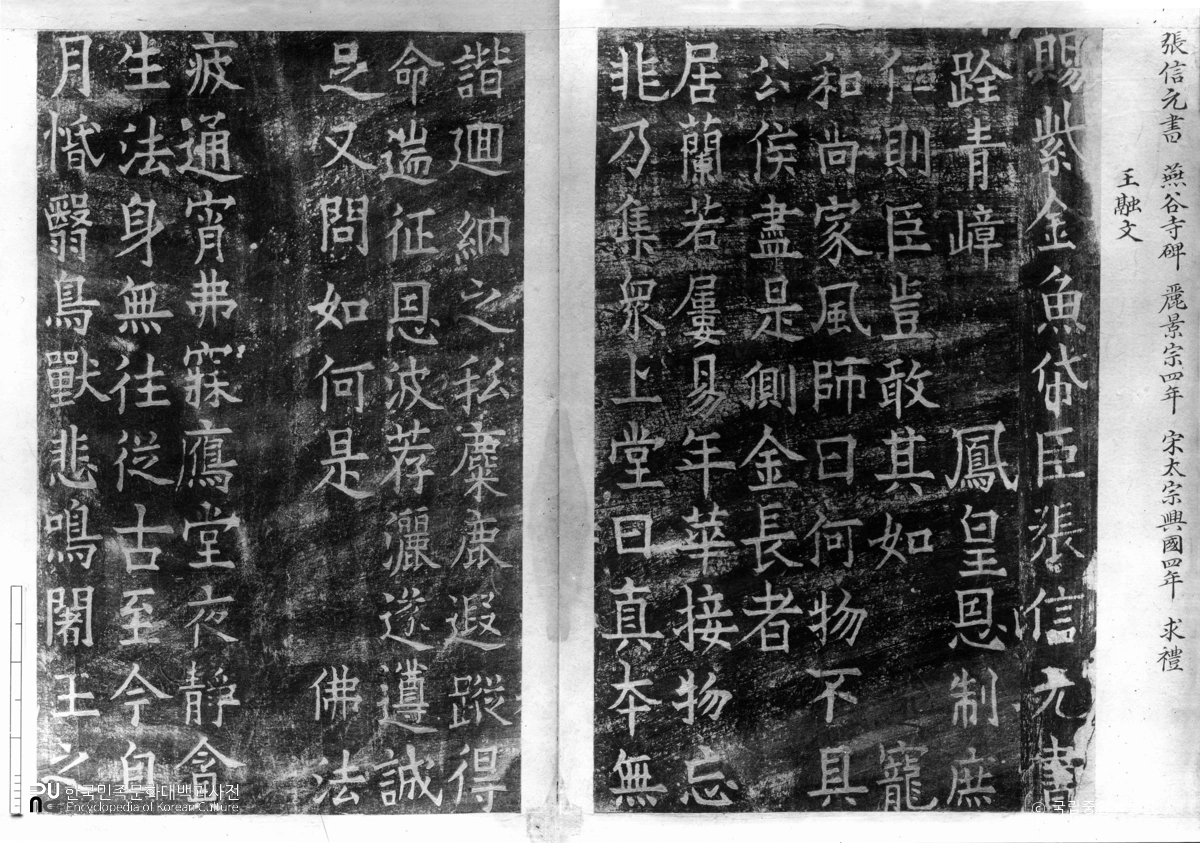 張信元書 燕谷寺碑 麗景宗四年 宋太宗興國四年 求禮
王融文
賜紫金魚袋臣張信元書
跧青嶂 鳳皇恩制庶
仁則臣豈敢其如 寵
和尚家風師曰何物不具
公侯盡是側金長者
居蘭若屢易年華接物忘
非乃集衆上堂曰真本無
諧迴納之私麋鹿遐蹤得
命遄征恩波荐灑遂遵誠
足又問如何是 佛法
疲通宵弗寐鴈堂夜靜
生法身無往從古至今自
月惛翳鳥獸悲鳴闍王之
한국민족문화대백과사전
Encyclopedia of Korean Culture